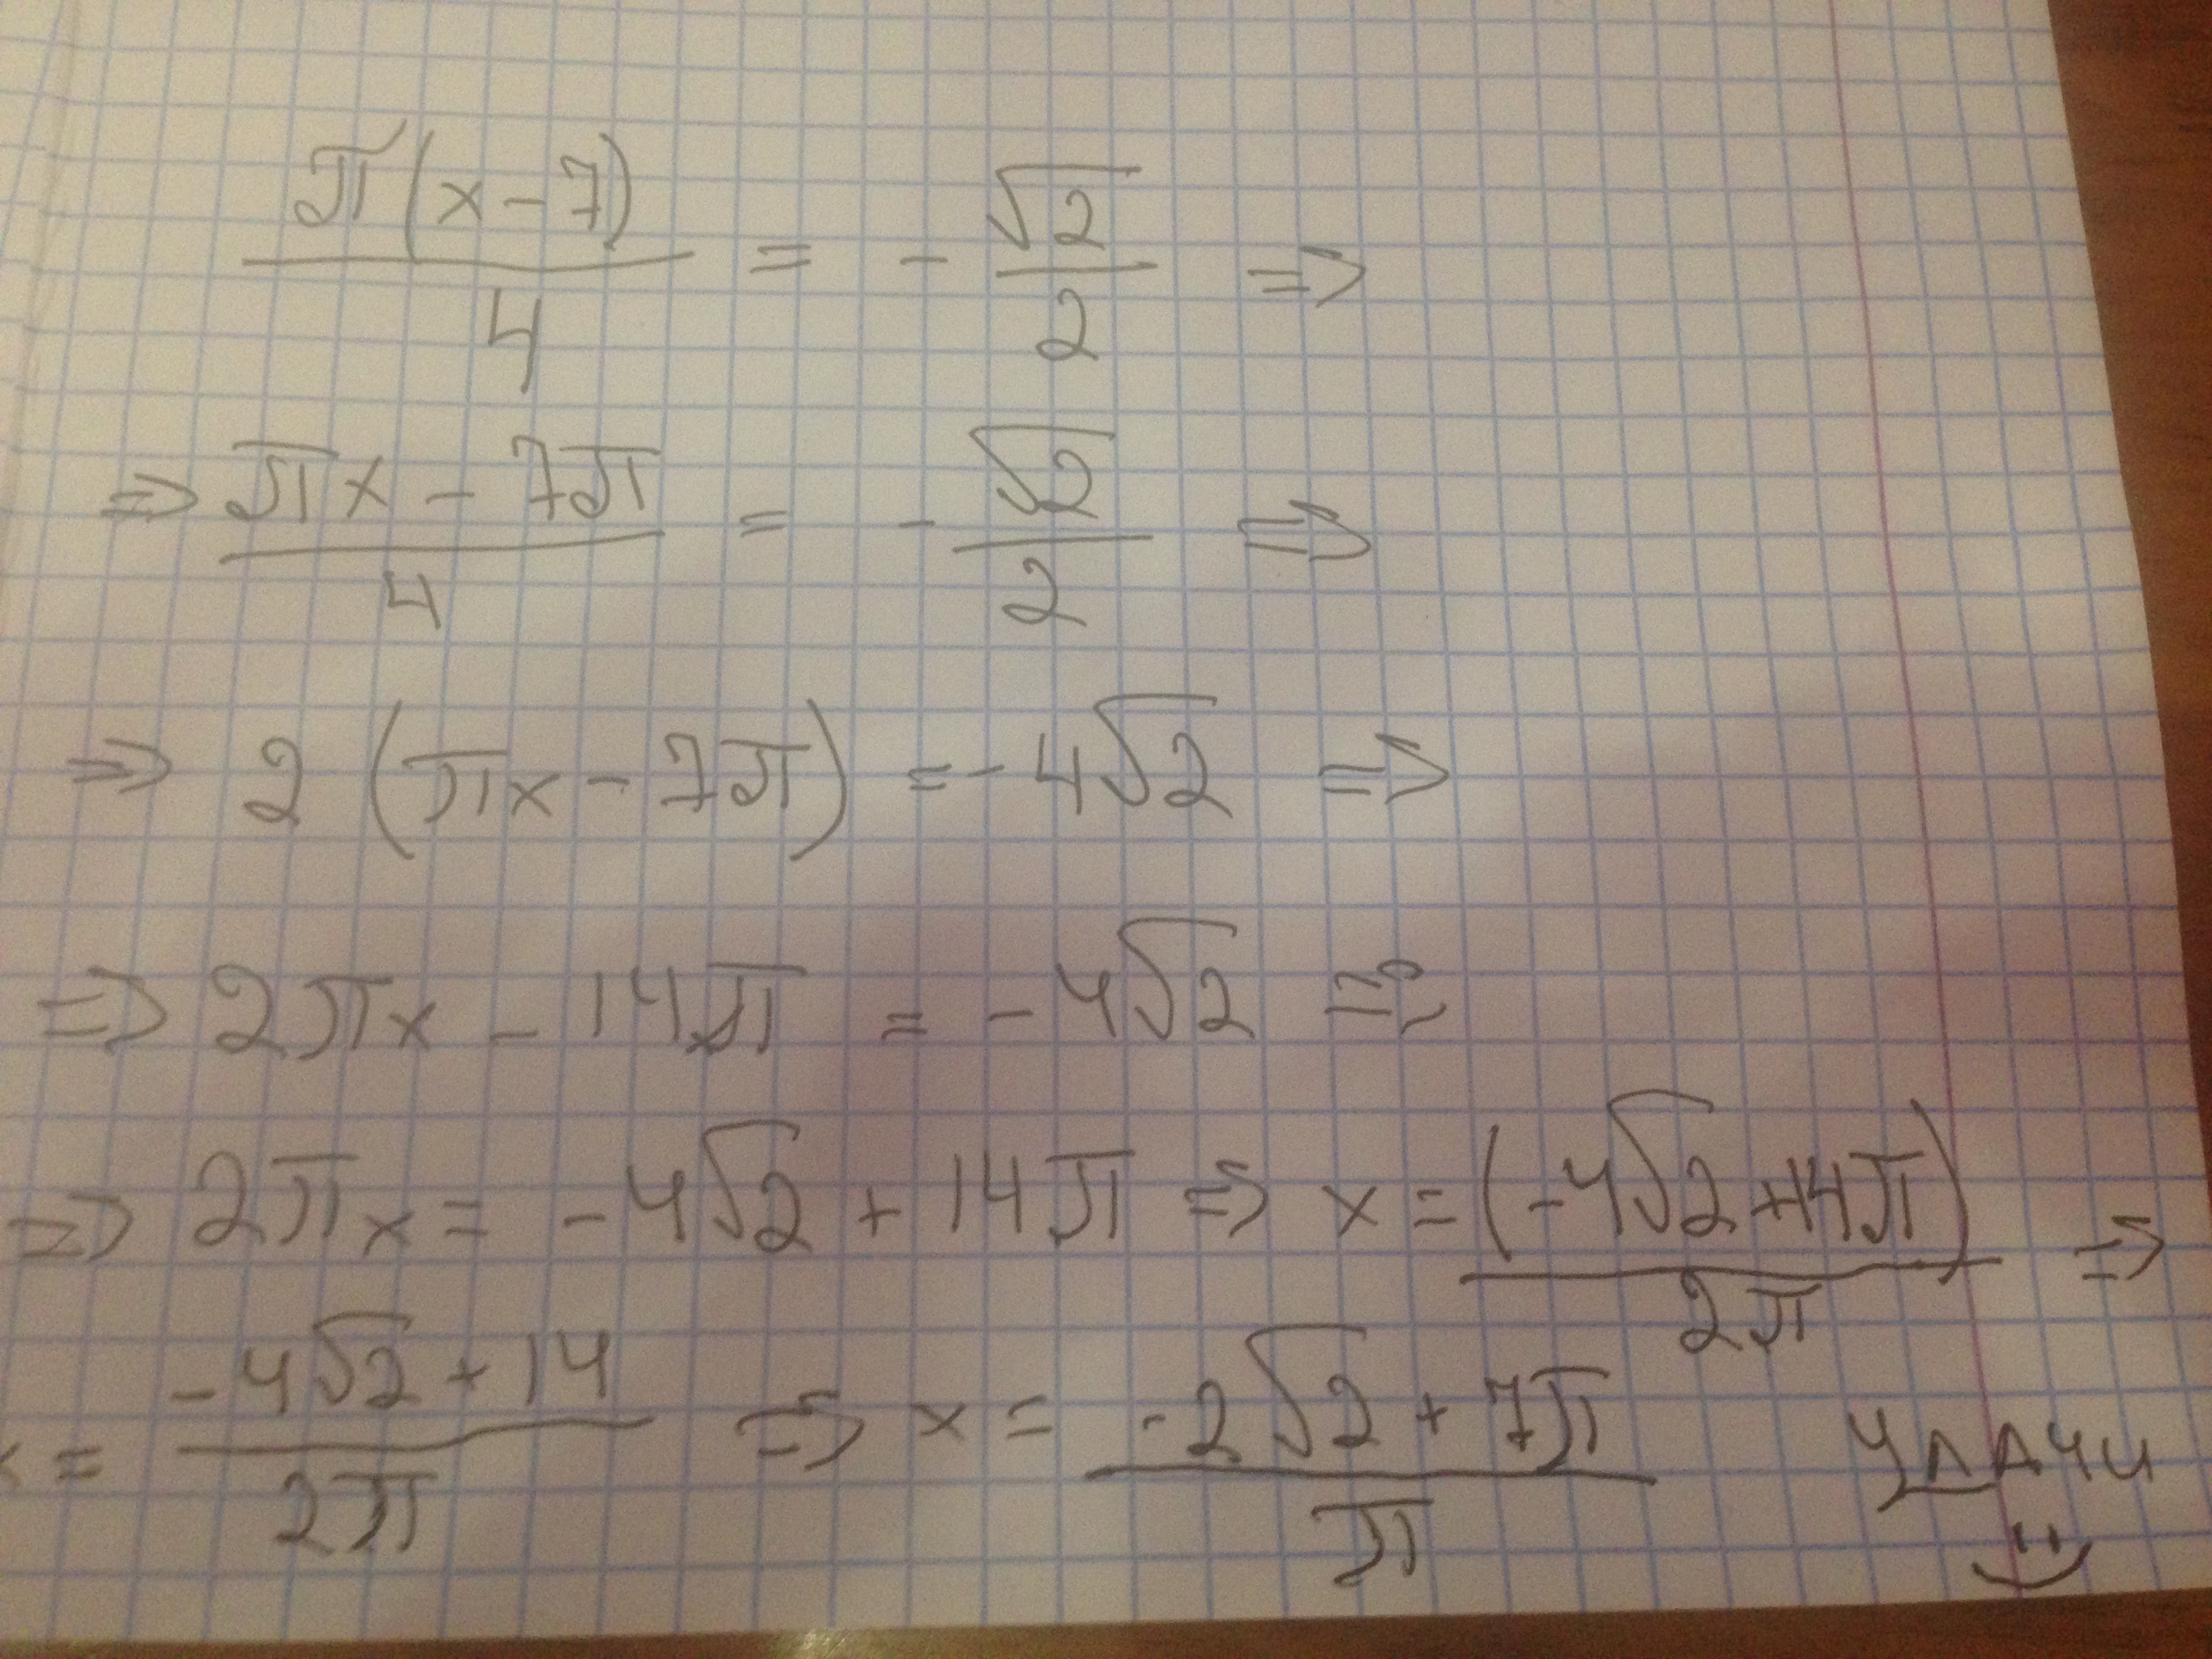 π(x-7)/4 = -√2/2 =>
=> πx - 7π/4 = -√2/2 =>
=> 2(πx - 7π) = -4√2 =>
=> 2πx - 14π = -4√2 =>
=> 2πx = -4√2 + 14π => x = (-4√2 + 14π)/2π =>
x = -4√2 + 14/2π => x = -2√2 + 7π/π
удачи